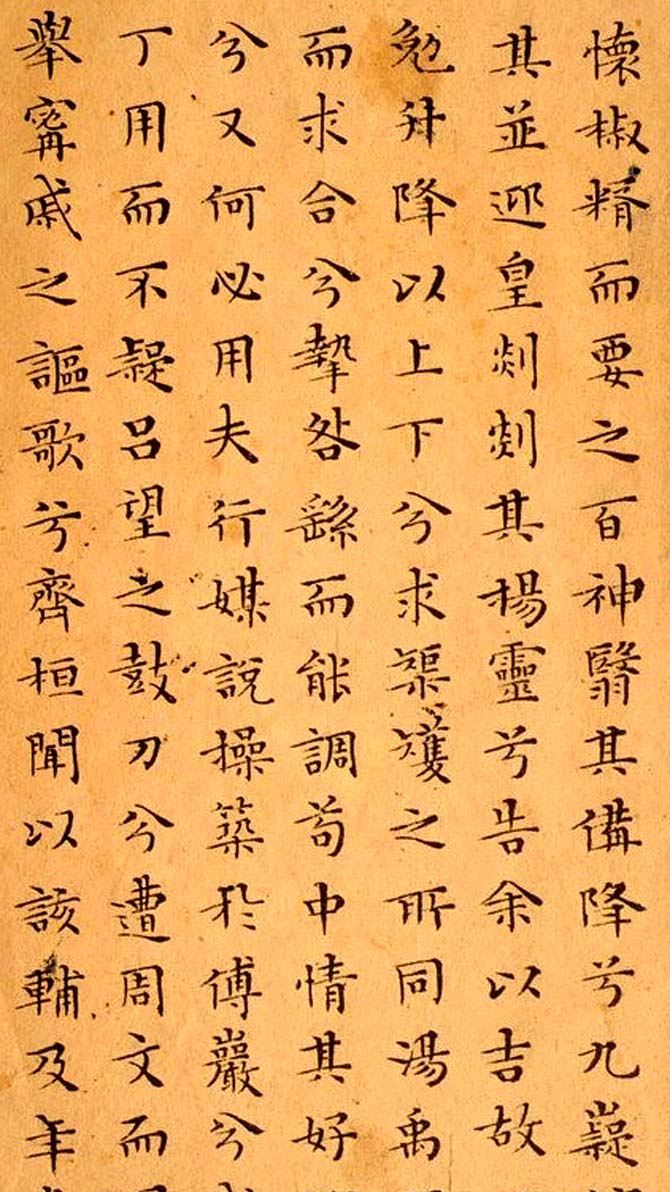 懷椒糈而要之百神翳其備降兮九嶷
其並迎皇剡剡其揚靈兮告余以吉故
勉升降以上下兮求榘矱之所同湯禹
而求合兮摯咎繇而能調苟中情其好
兮又何必用夫行媒說操築於傅巖兮
丁用而不疑呂望之鼓刀兮遭周文而
舉寗戚之謳歌兮齊桓聞以該輔及年